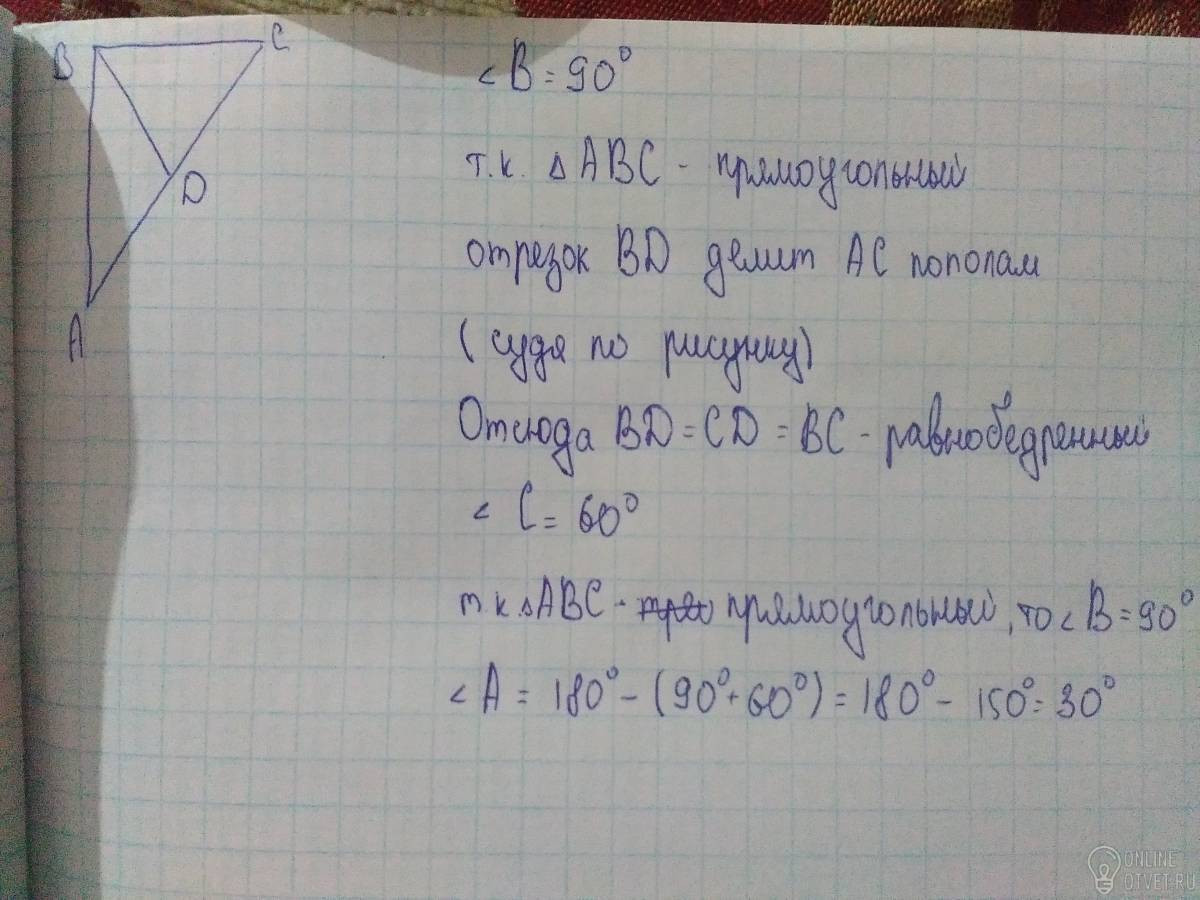 B C
D
A
< B = 90°
т.к. △ ABC - прямоугольный
отрезок BD делит AC пополам
(судя по рисунку)
Отсюда BD = CD = BC - равнобедренный
< C = 60°
т.к △ABC - прямоугольный, то < B = 90°
< A = 180° - (90° + 60°) = 180° - 150° = 30°
ONLINE
OTVET.RU